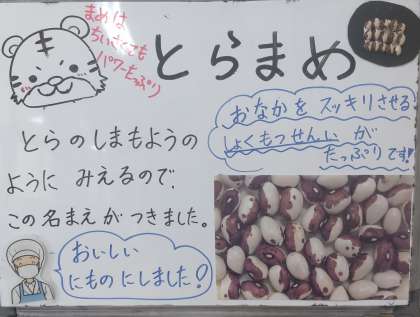 まめは
ちいさくても
パワーたっぷり
とらまめ
おなかを スッキリさせる
しょくもつせんい が
たっぷり です!!
とら の しまもようの
ように みえるので、
この 名まえ が つきました。
おいしい
にもの にしました!